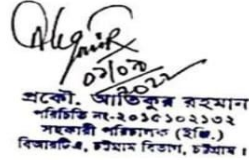 ০২/০৩/২০২২
প্রকৌ. আতিকুর রহমান
পরিচিতি নং-২০১৫১০২১৩২
সহকারী পরিচালক (ইঞ্জি.)
বিআরটিএ, চট্টগ্রাম বিভাগ, চট্টগ্রাম।